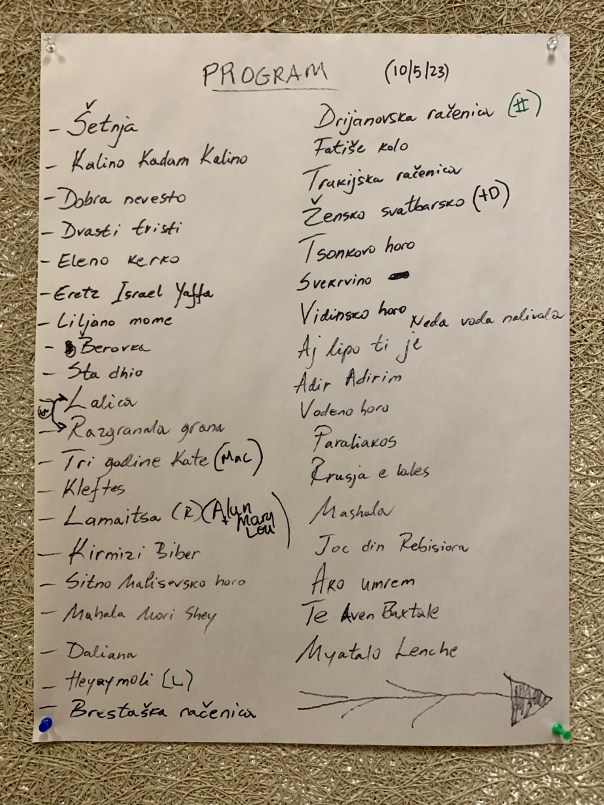 PROGRAM (10/5/23)
- Šetnja
- Kalino Kadam Kalino
- Dobra nevesto
- Dvasti tristi
- Eleno kerko
- Eretz Israel Yaffa
- Liljano mome
- Berovka
- Sta dhio
- Lalica
- Razgranala grana
- Tri godine Kate (Mac)
- Kleftes
- Lamaitsa (R) (Alun + Mary Lou)
- Kirmizi Biber
- Sitno Mališevsko horo
- Mahala Mori Shey
- Daliana
- Heyaymoli (L)
- Brestaška račenica
Drijanovska račenica (#)
Fatiše kolo
Trakijska račenica
Žensko svatbarsko (+D)
Tsonkovo horo
Svekrvino
Vidinsko horo
Neda voda nalivala
Aj lipo ti je
Adir Adirim
Vodeno horo
Paraliakos
Rrusja e bales
Mashala
Joc din Rebisiora
Ako umrem
Te Aven Baxtale
Myatalo Lenche